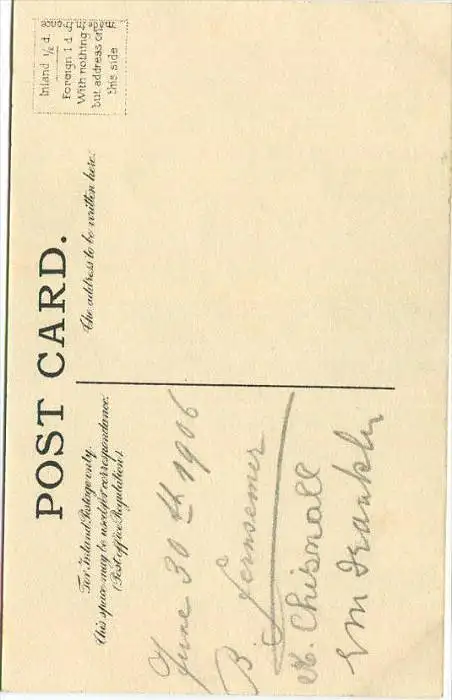 POST CARD.
For Inland Postage only.
This space may be used for correspondence.
(Post office Regulations).
The address to be written here.
Inland ½ d.
Foreign 1 d.
With nothing
but address on
this side
June 30th 1906
B
A. Chisnall
EM Franklin